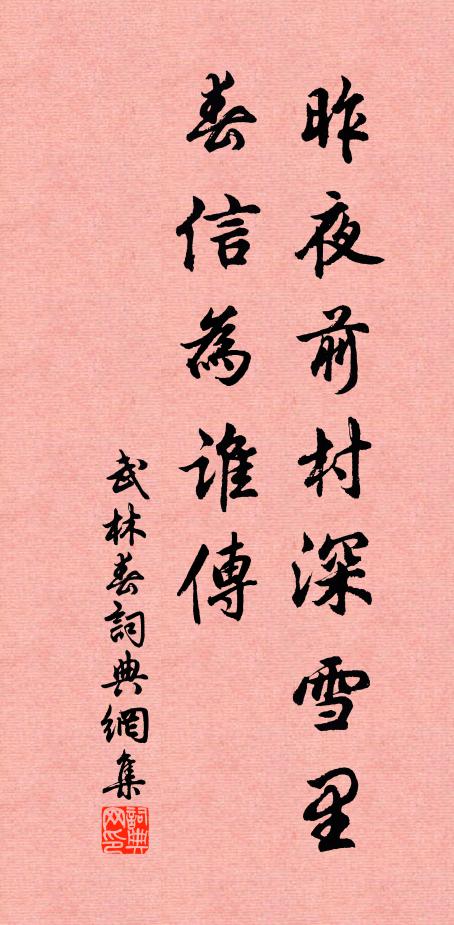 昨夜前村深雪里
春信為谁傳
武林春詞典網集
詞典
网印